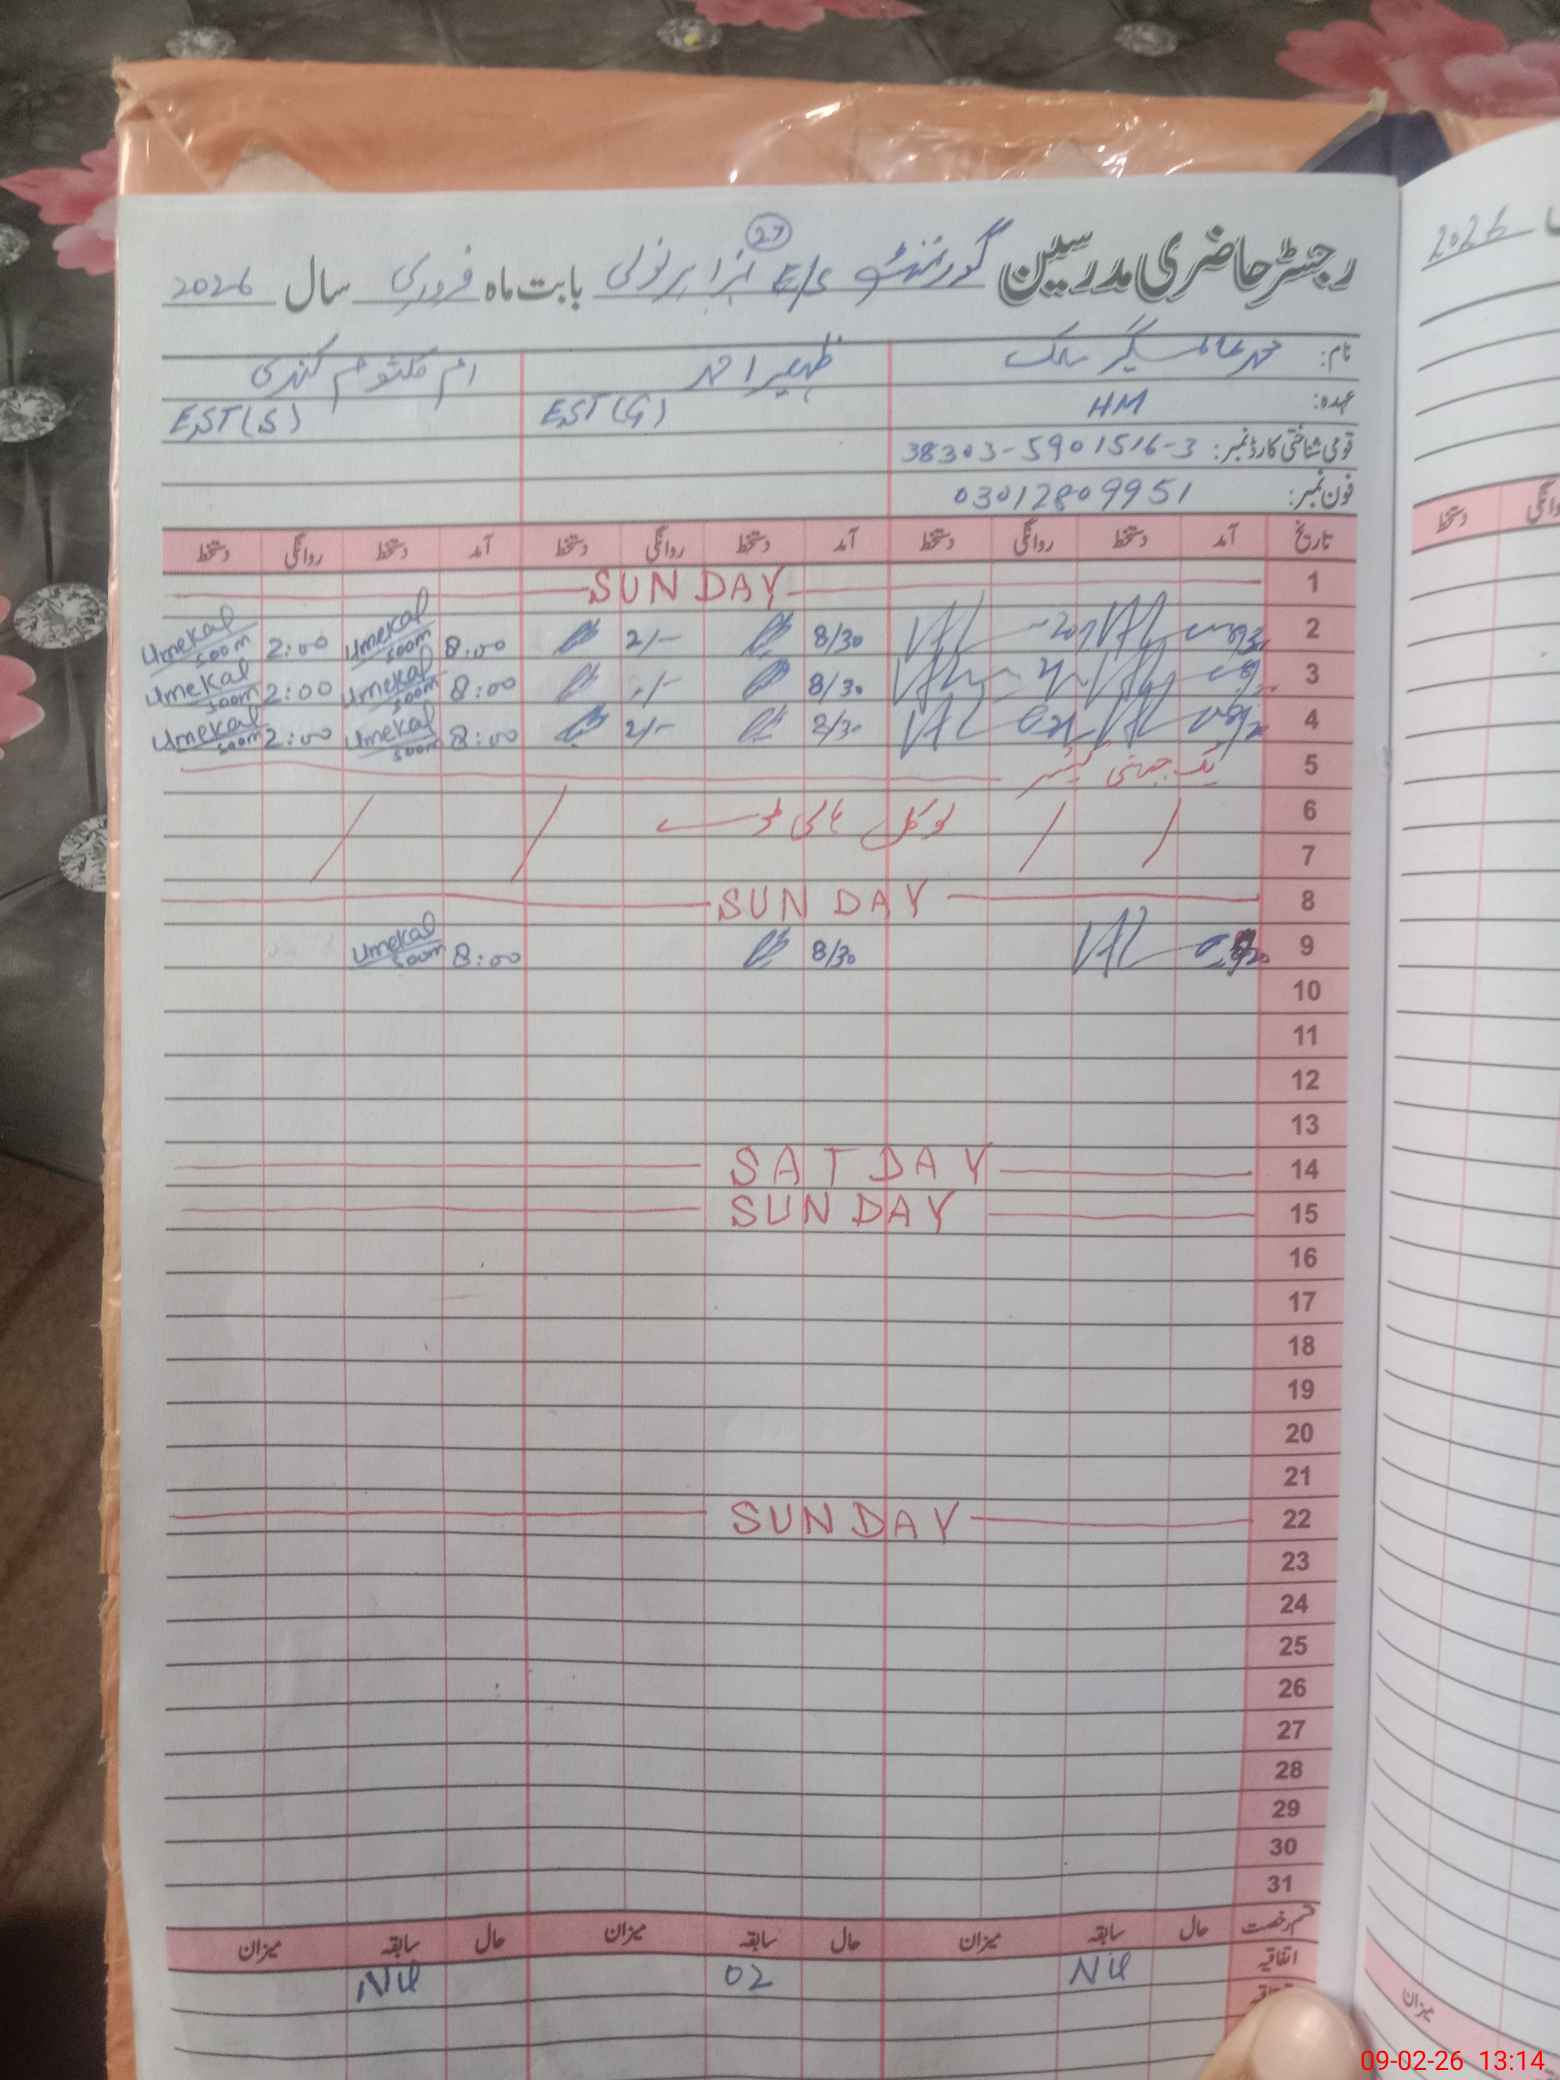 رجسٹر حاضری مدرسین گورنمنٹ E/S بابت ماہ فروری سال 2026
27
نام: محمد عالمگیر ملک ظہیر احمد ام کلثوم کندی
عہدہ: HM EST(G) EST(S)
قومی شناختی کارڈ نمبر: 38303-5901516-3
فون نمبر: 03012809951
تاریخ آمد دستخط روانگی دستخط آمد دستخط روانگی دستخط آمد دستخط روانگی دستخط
1 SUNDAY
2 8/30 2/- 8:00 Umekal soom 2:00 Umekal soom
3 8/30 8:00 Umekal soom 2:00 Umekal soom
4 8/30 2/- 8:00 Umekal soom 2:00 Umekal soom
5 یک جہتی کشمیر
6 لوکل
7
8 SUNDAY
9 8/30 8:00 Umekal soom
10
11
12
13
14 SATDAY
15 SUNDAY
16
17
18
19
20
21
22 SUNDAY
23
24
25
26
27
28
29
30
31
قسم رخصت حال سابقہ میزان حال سابقہ میزان حال سابقہ میزان
اتفاقیہ Nil 02 Nil
2026
روانگی دستخط
میزان
09-02-26 13:14